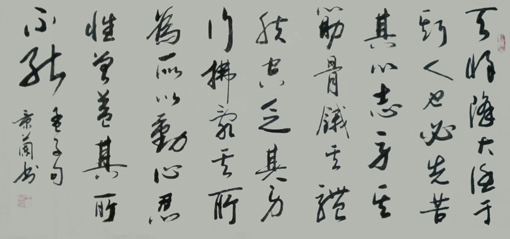 天將降大任于
斯人也必先苦
其心志勞其
筋骨餓其體
膚空乏其身
行拂亂其所
為所以動心忍
性曾益其所
不能
孟子句